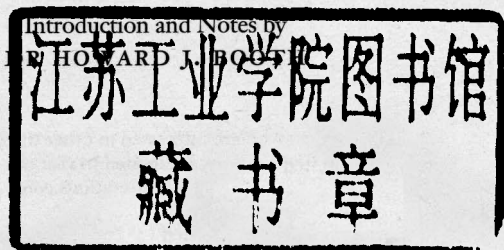 Introduction and Notes by
DR HOWARD J. BOOTH
江苏工业学院图书馆
藏书章